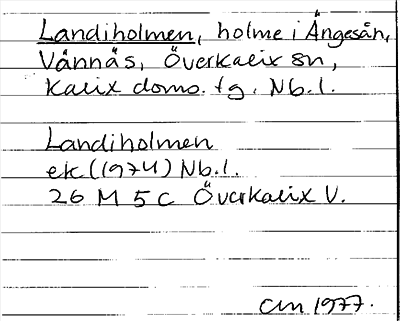 Landiholmen, holme i Ängesån,
Vännäs, Överkalix sn,
Kalix doms. tg. Nb.l.
Landiholmen
ek (1974) Nb.l.
26 M 5 c Överkalix V.
CM 1977.